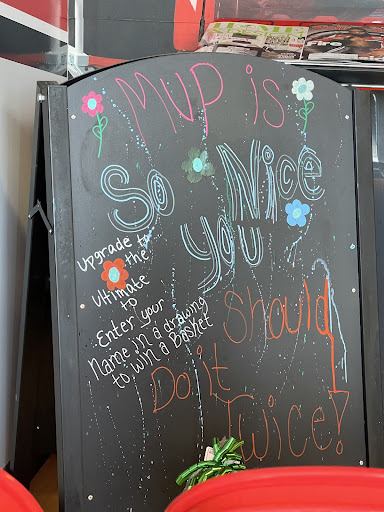 MVP is
So Nice
you
Should
Do it
Twice!
Upgrade to
the
Ultimate
to
Enter your
Name in a drawing
to win a Basket